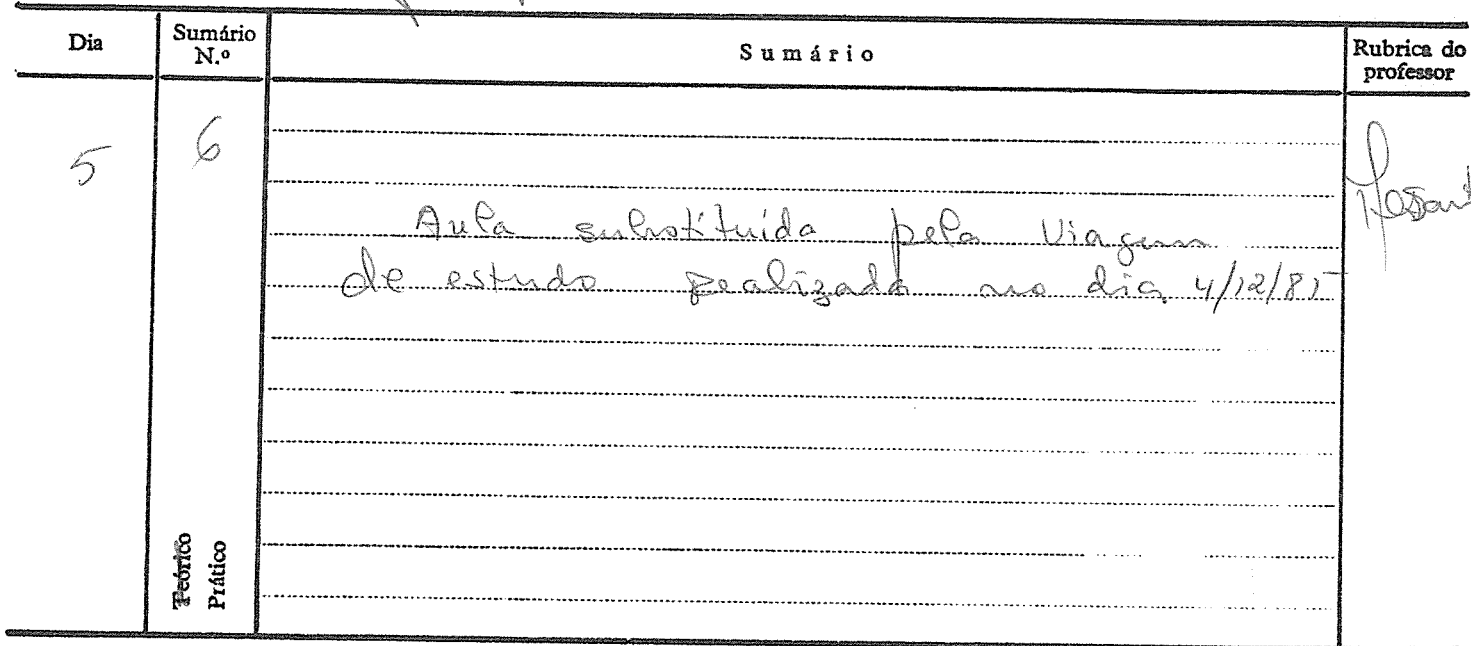 Dia
Sumário N.º
Sumário
Rubrica do professor
5
6
Aula substituída pela Viagem
de estudo realizada no dia 4/12/85
Teórico
Prático